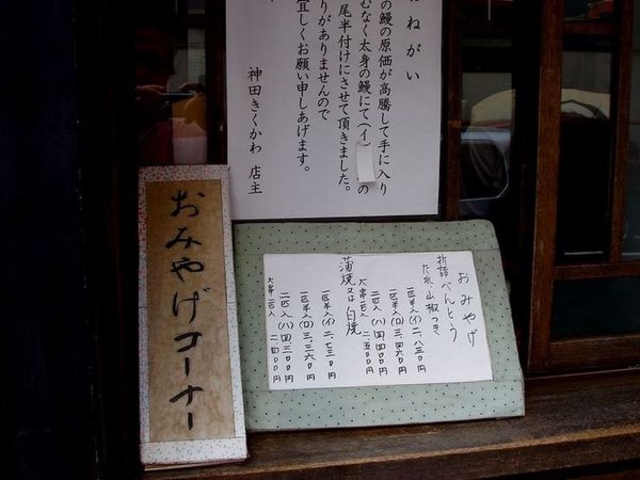 おねがい
の鰻の原価が高騰して手に入り
むなく太身の鰻にて(イ)の
尾半付けにさせて頂きました。
りがありませんので
宜しくお願い申しあげます。
神田きくかわ 店主
おみやげコーナー
おみやげ
折詰べんとう
たれ、山椒つき
一匹半入(イ)二、八三〇円
一匹半入(ロ)三、四六〇円
二匹入(ハ)四、四〇〇円
大串二匹入 二、五〇〇円
蒲焼又は白焼
一匹半入(イ)二、七三〇円
一匹半入(ロ)三、三六〇円
二匹入(ハ)四、三〇〇円
大串二匹入 二、四〇〇円